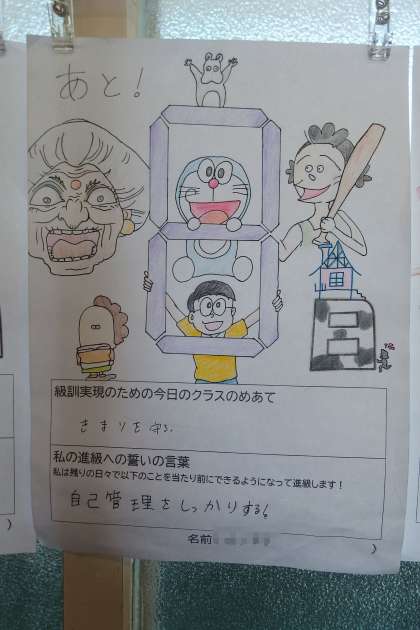 あと!
8日
級訓実現のための今日のクラスのめあて
きまりを守る。
私の進級への誓いの言葉
私は残りの日々で以下のことを当たり前にできるようになって進級します!
自己管理をしっかりする!
名前
)
)